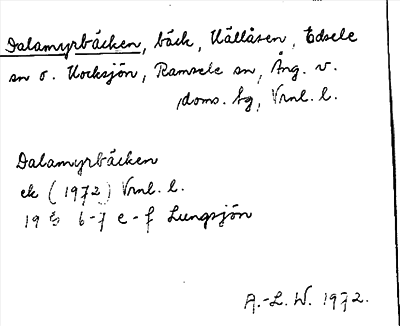 Dalamyrbäcken, bäck, Källåsen, Edsele
sn o. Kocksjön, Ramsele sn, Ång. v.
doms. bg, Vrnl. l.
Dalamyrbäcken
ek (1972) Vrnl. l.
19 6-7 e-f Lungsjön
A.-L. W. 1972.